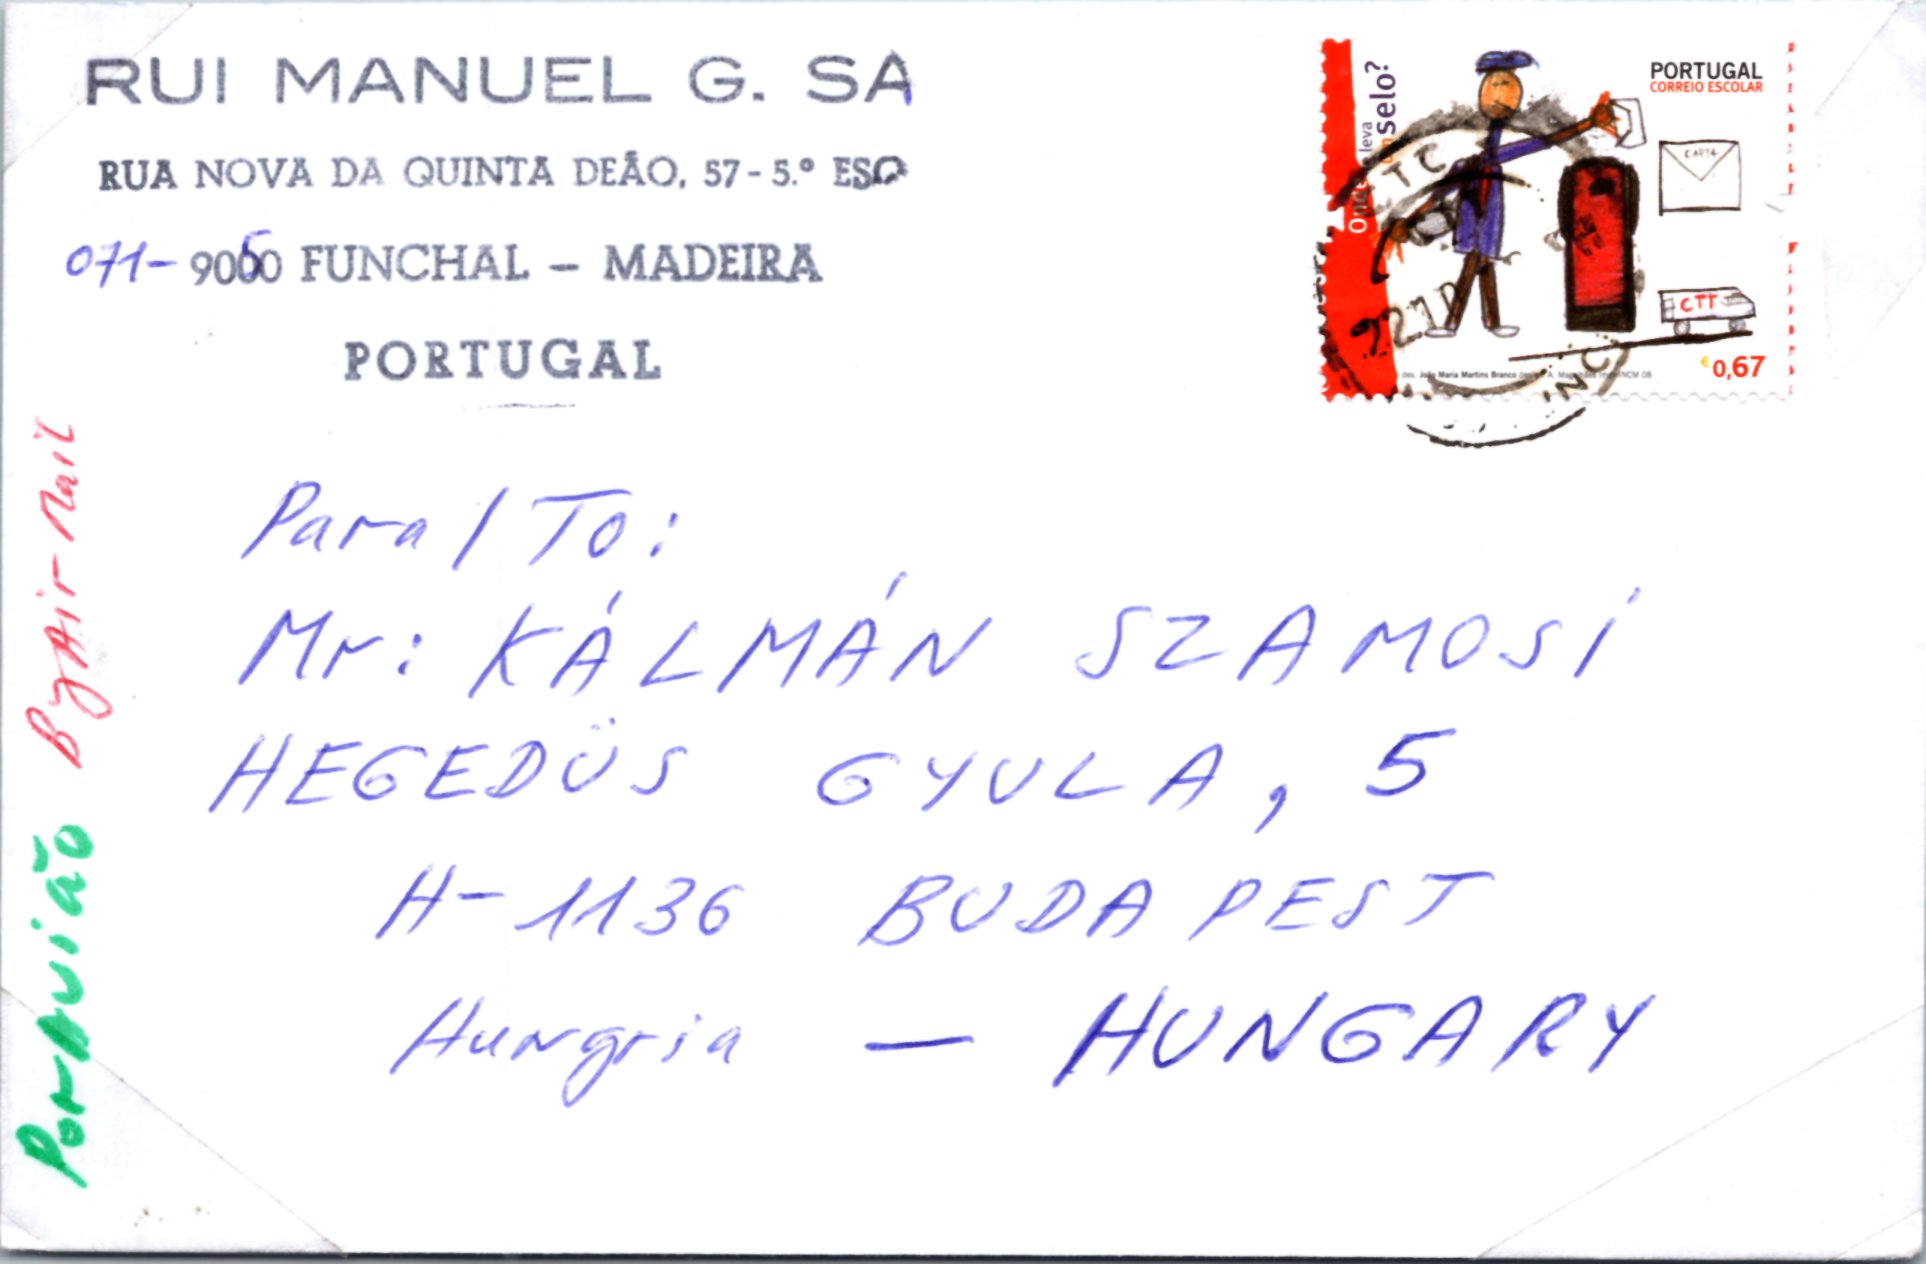 RUI MANUEL G. SÁ
RUA NOVA DA QUINTA DEÃO, 57 - 5.º ESQ
071- 9050 FUNCHAL – MADEIRA
PORTUGAL
selo?
leva
PORTUGAL
CORREIO ESCOLAR
CARTA
CTT
€0,67
des. João Maria Martins Branco
By Air Mail
Por Avião
Para / To:
Mr: KÁLMÁN SZAMOSI
HEGEDÜS GYULA, 5
H-1136 BUDAPEST
Hungria — HUNGARY